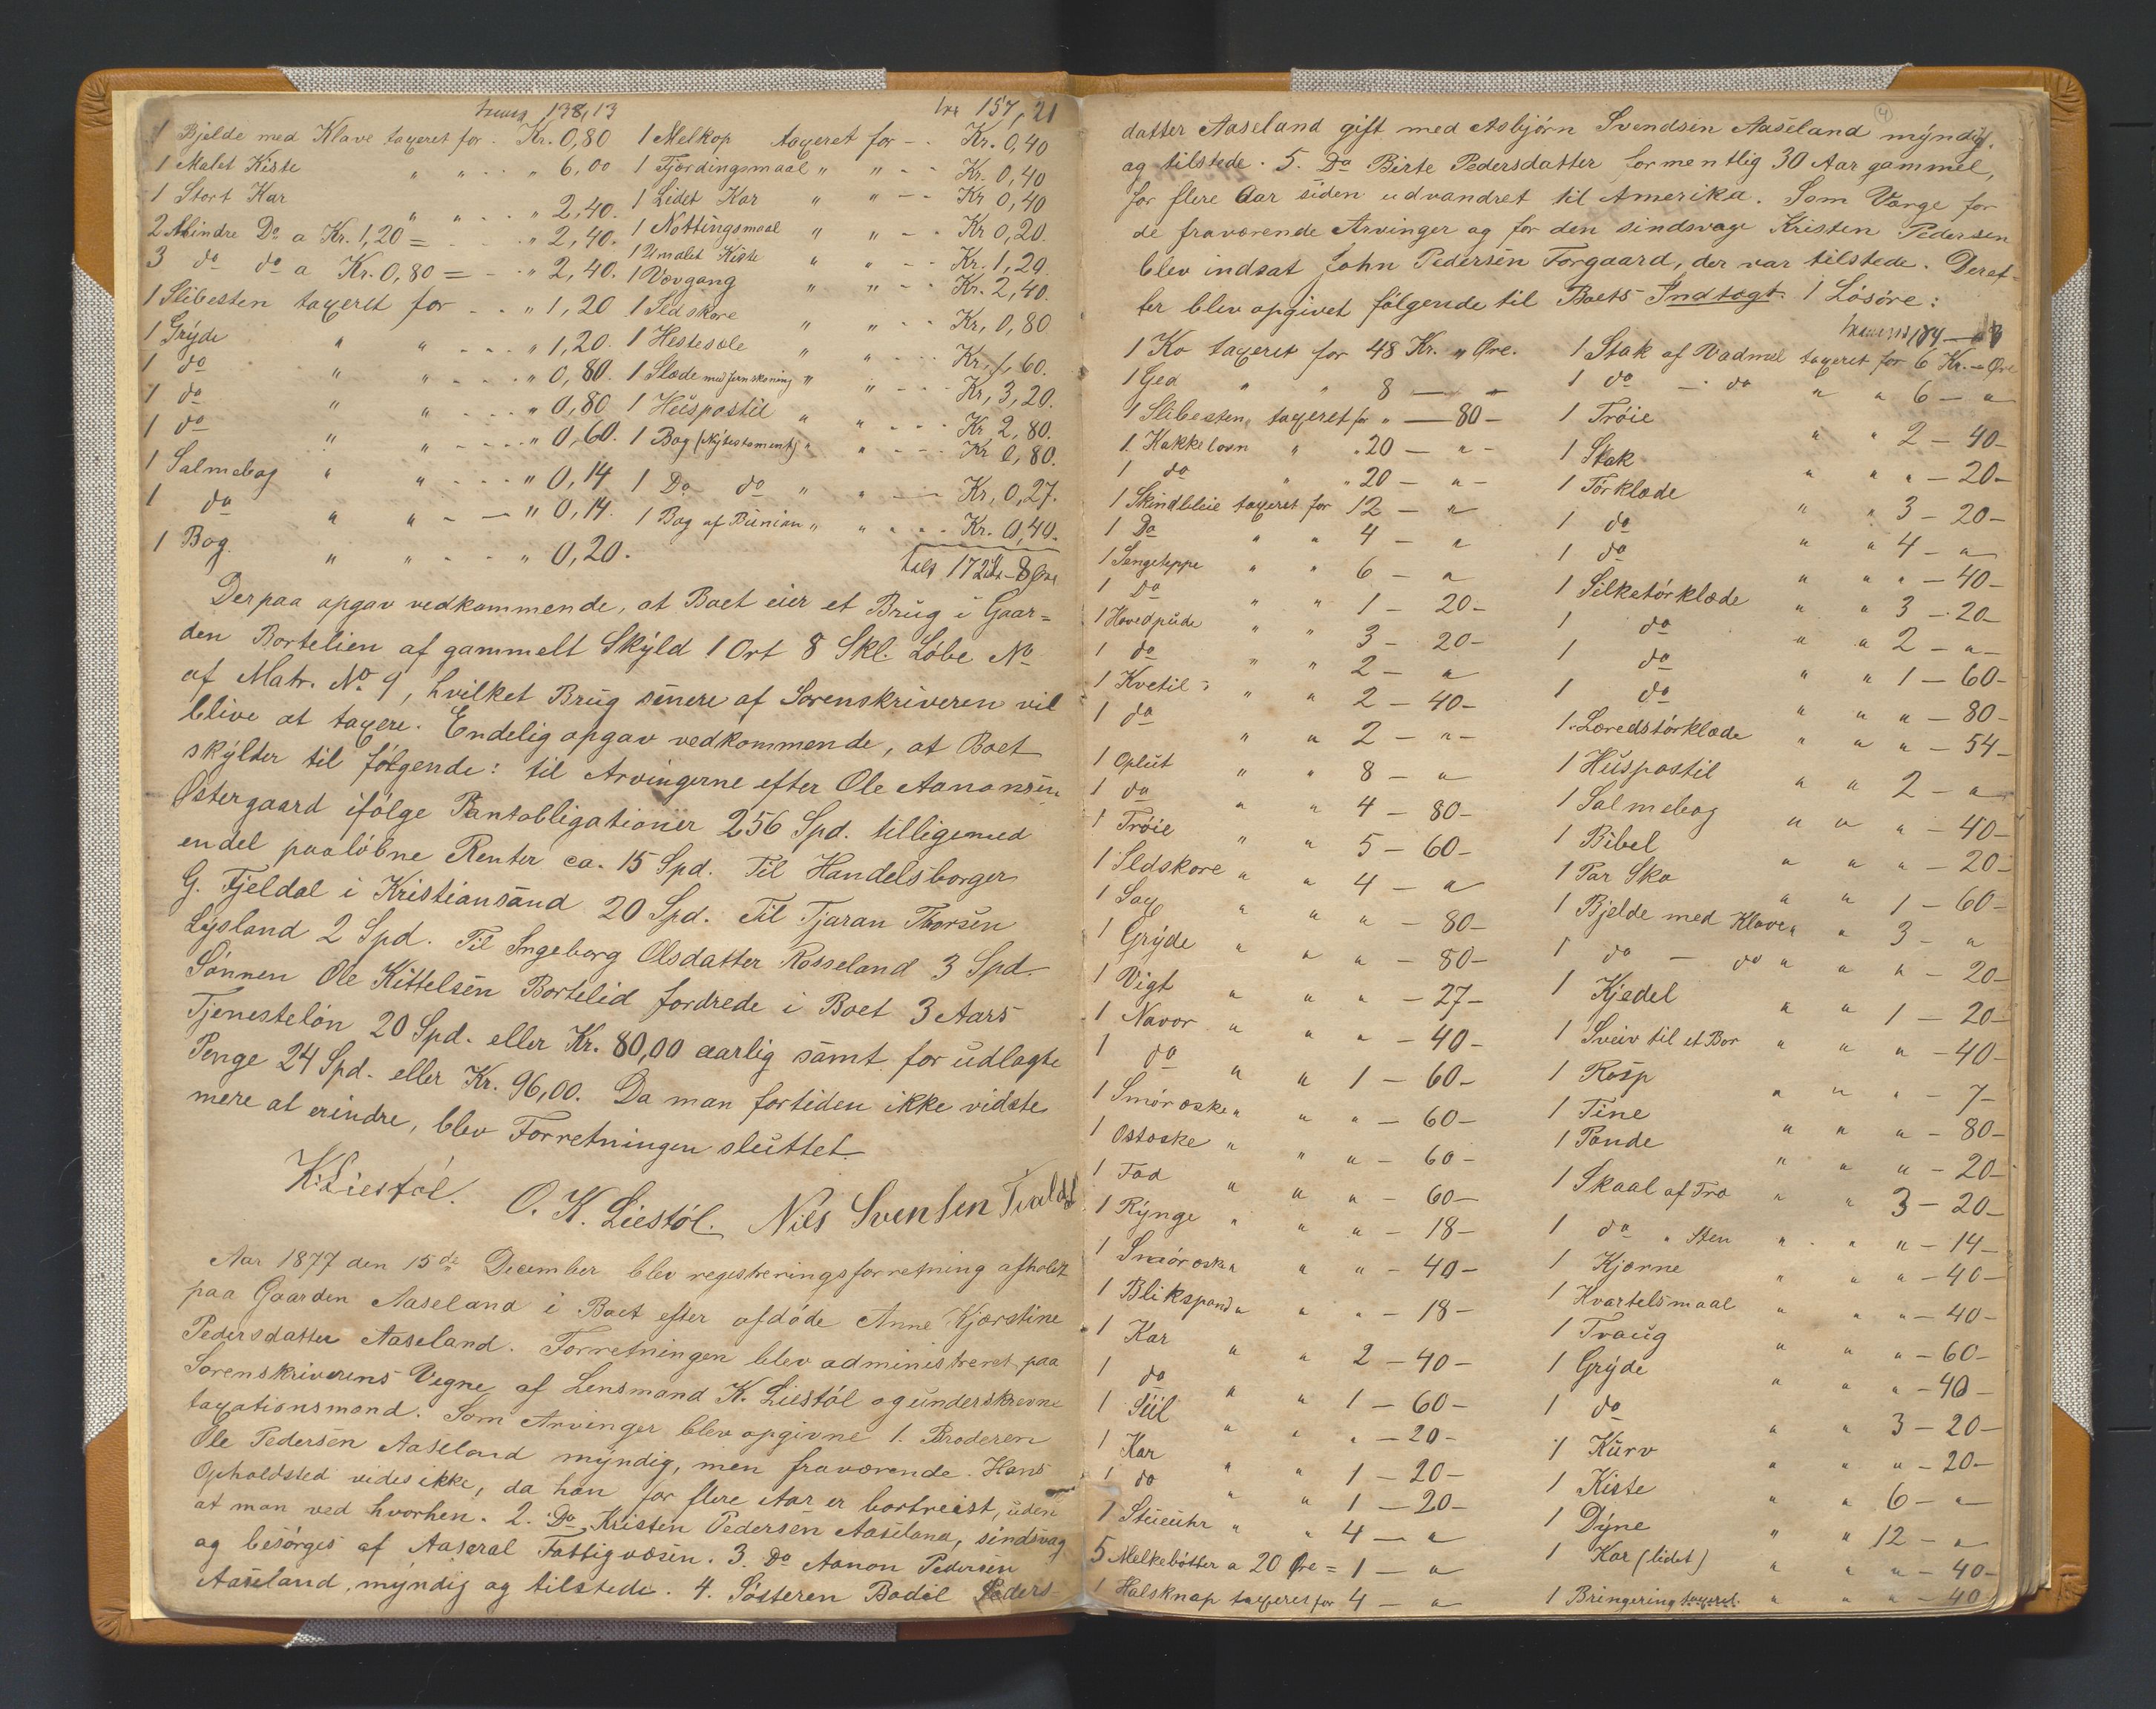 138,13
1 Bjelde med Klave taxeret for . Kr. 0,80
1 Malet Kiste " " . . " 6,00
1 Stort Kar " " . . " 2,40.
2 Mindre Do a Kr. 1,20 = . . . " 2,40.
3 do do a Kr. 0,80 = - . " 2,40.
1 Slibesten taxeret for . . " 1,20
1 Grÿde " " - . . " 1,20.
1 do " " - . . " 0,80.
1 do " " - . . " 0,80
1 do " " - - . . " 0,60.
1 Salmebog " " - . . " 0,14
1 do " " - — " 0,14.
1 Bog " " - . " 0,20.
157,21
1 Melkop taxeret for - . Kr. 0,40
1 Fjordingsmaal " " - - Kr. 0,40
1 Lidet Kar " " - - Kr 0,40
1 Nottingsmaal " " - - Kr 0,20.
1 Umalet Kiste " " - - Kr. 1,20
1 Vævgang " " - - Kr. 2,40.
1 Sldskore " " - - Kr, 0,80
1 Hestesæle " " - - Kr, 1,60.
1 Slæde med jernskoning " " - Kr, 3,20.
1 Hüspostil " " - - - Kr 2,80.
1 Bog (Nÿtestament) " " - - - Kr 0,80.
1 Do do " " - — Kr, 0,27.
1 Bog af Bünian " " - - - Kr. 0,40.
172 Kr - 8 Øre
Derpaa opgav vedkommende, at Boet eier et Brüg i Gaar=
den Bortelien af gammelt Skÿld 1 Ort 8 Skl. Löbe No
af Matr. No 9, hvilket Brüg senere af Sorenskriveren vil
blive at taxere. Endelig opgav vedkommende, at Boet
skÿlder til fölgende: til Arvingerne efter Ole Aanonsen
Østergaard ifölge Pantobligationer 256 Spd. tilligemed
endel paalöbne Renter ca. 15 Spd. Til Handelsborger
G. Fjeldal i Kristiansand 20 Spd. Til Tjaran Thorsen
Lÿsland 2 Spd. Til Ingeborg Olsdatter Rosseland 3 Spd.
Sönnen Ole Kittelsen Bortelid fordrede i Boet 3 Aars
Tjenestelön 20 Spd. eller Kr. 80,00 aarlig samt for üdlagte
Penge 24 Spd. eller Kr. 96,00. Da man fortiden ikke vidste
mere at erindre, blev Forretningen slüttet.
K. Liestöl. O. K. Liestöl. Nils Svensen
Aar 1877 den 15de December blev registreringsforretning afholdt
paa Gaarden Aaseland i Boet efter afdöde Anne Kjærstine
Pedersdatter Aaseland. Forretningen blev administreret paa
Sorenskriverens Vegne af Lensmand K. Liestöl og ünderskrevne
taxationsmænd. Som Arvinger blev opgivne 1. Broderen
Ole Pedersen Aaseland mÿndig, men fraværende. Hans
Opholdsted vides ikke, da han for flere Aar er bortreist, üden
at man ved hvorhen. 2. Do Kristen Pedersen Aaseland, sindsvag
og besörges af Aaseral Fattigvæsen. 3. Do Aanon Pedersen
Aaseland, mÿndig og tilstede. 4. Sösteren Bodil Peders-
4
datter Aaseland gift med Asbjörn Svendsen Aaseland mÿndig
og tilstede. 5. Do Birte Pedersdatter formentlig 30 Aar gammel,
for flere Aar siden udvandret til Amerika. Som Værge for
de fraværende Arvinger og for den sindsvage Kristen Pedersen
blev indsat John Pedersen Torgaard, der var tilstede. Deref-
ter blev opgivet fölgende til Boets Indtægt. 1 Lösöre:
1 Ko taxeret for 48 Kr. " Øre.
1 Ged " " 8 — "
1 Slibesten, taxeret for " — 80 -
1 Kakkelovn " " 20 — " -
1 do " " 20 — " -
1 Skindbleie taxeret for 12 — "
1 Do " " 4 — "
1 Sengeteppe " " 6 — "
1 do " " 1 — 20 -
1 Hovedpüde " " 3 — 20 -
1 do " " 2 — "
1 Kvetil " " 2 — 40 -
1 do " " 2 — " -
1 Oplüt " " 8 — "
1 do " " 4 — 80 -
1 Tröie " " 5 — 60 -
1 Sldskore " " 4 — "
1 Sag " " " — 80 -
1 Grÿde " " " — 80 -
1 Vigt " " " — 27 -
1 Navor " " " — 40 -
1 do " " 1 — 60 -
1 Smöræske " " " — 60 -
1 Ostæske " " " — 60 -
1 Fad " " " — 60 -
1 Rÿnge " " " — 18 -
1 Smöræske " " " — 40 -
1 Blikspand " " " — 18 -
1 Kar " " 2 — 40 -
1 do " " 1 — 60 -
1 Siil " " " — 20 -
1 Kar " " 1 — 20 -
1 do " " 1 — 20 -
1 Stüeühr " " 4 — "
5 Melkebötter a 20 Øre = 1 — "
1 Halsknap taxeret for 4 — "
1 Stak af Vadmel taxeret for 6 Kr. - Øre
1 do — do " " 6 — "
1 Tröie " " 2 — 40 -
1 Stak " " " — 20 -
1 Törklæde " " 3 — 20 -
1 do " " 4 — "
1 do " " " — 40 -
1 Silketörklæde " " 3 — 20 -
1 do " " 2 — " -
1 do " " 1 — 60 -
1 do " " " — 80 -
1 Læredstörklæde " " " — 54 -
1 Hüspostil " " 2 — "
1 Salmebog " " " — 40 -
1 Bibel " " " — 20 -
1 Par Sko " " 1 — 60 -
1 Bjelde med Klave " " 3 — "
1 do — do " " " — 20 -
1 Kjedel " " 1 — 20 -
1 Sveiv til et Bor " " " — 40 -
1 Rasp " " " — 7 -
1 Tine " " " — 80 -
1 Pande " " " — 20 -
1 Skaal af Træ " " 3 — 20 -
1 do " Sten " " " — 14 -
1 Kjærne " " " — 40 -
1 Kvartelsmaal " " " — 40 -
1 Traüg " " " — 60 -
1 Grÿde " " " — 40 -
1 do " " 3 — 20 -
1 Kürv " " " — 20 -
1 Kiste " " 6 — "
1 Dÿne " " 12 — "
1 Kar (lidet) " " " — 40 -
1 Bringering taxeret " " " — 40